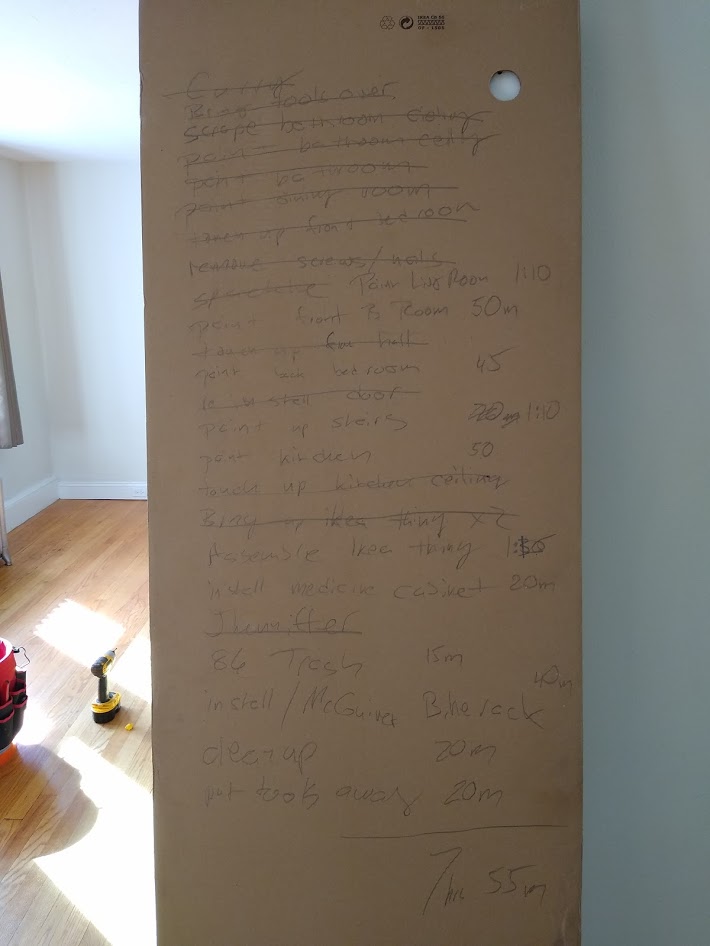 Bring tools over
scrape bathroom cieling
paint bathroom ceiling
paint bathroom
paint dining room
touch up front bedroom
remove screws/nails
spackle Paint Livg Room 1:10
paint front B Room 50m
touch up hall
paint back bedroom 45
install door
paint up stairs 1:10
paint kitchen 50
touch up kitchen ceiling
Bring up ikea thing x2
Assemble Ikea thing
install medicine cabinet 20m
86 Trash 15m
40m
install/McGuiver Bike rack
clean up 20m
put tools away 20m
7hrs 55m